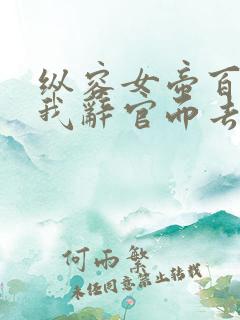 纵容女帝百
我辞官而去
何雨繁
未经同意禁止转载